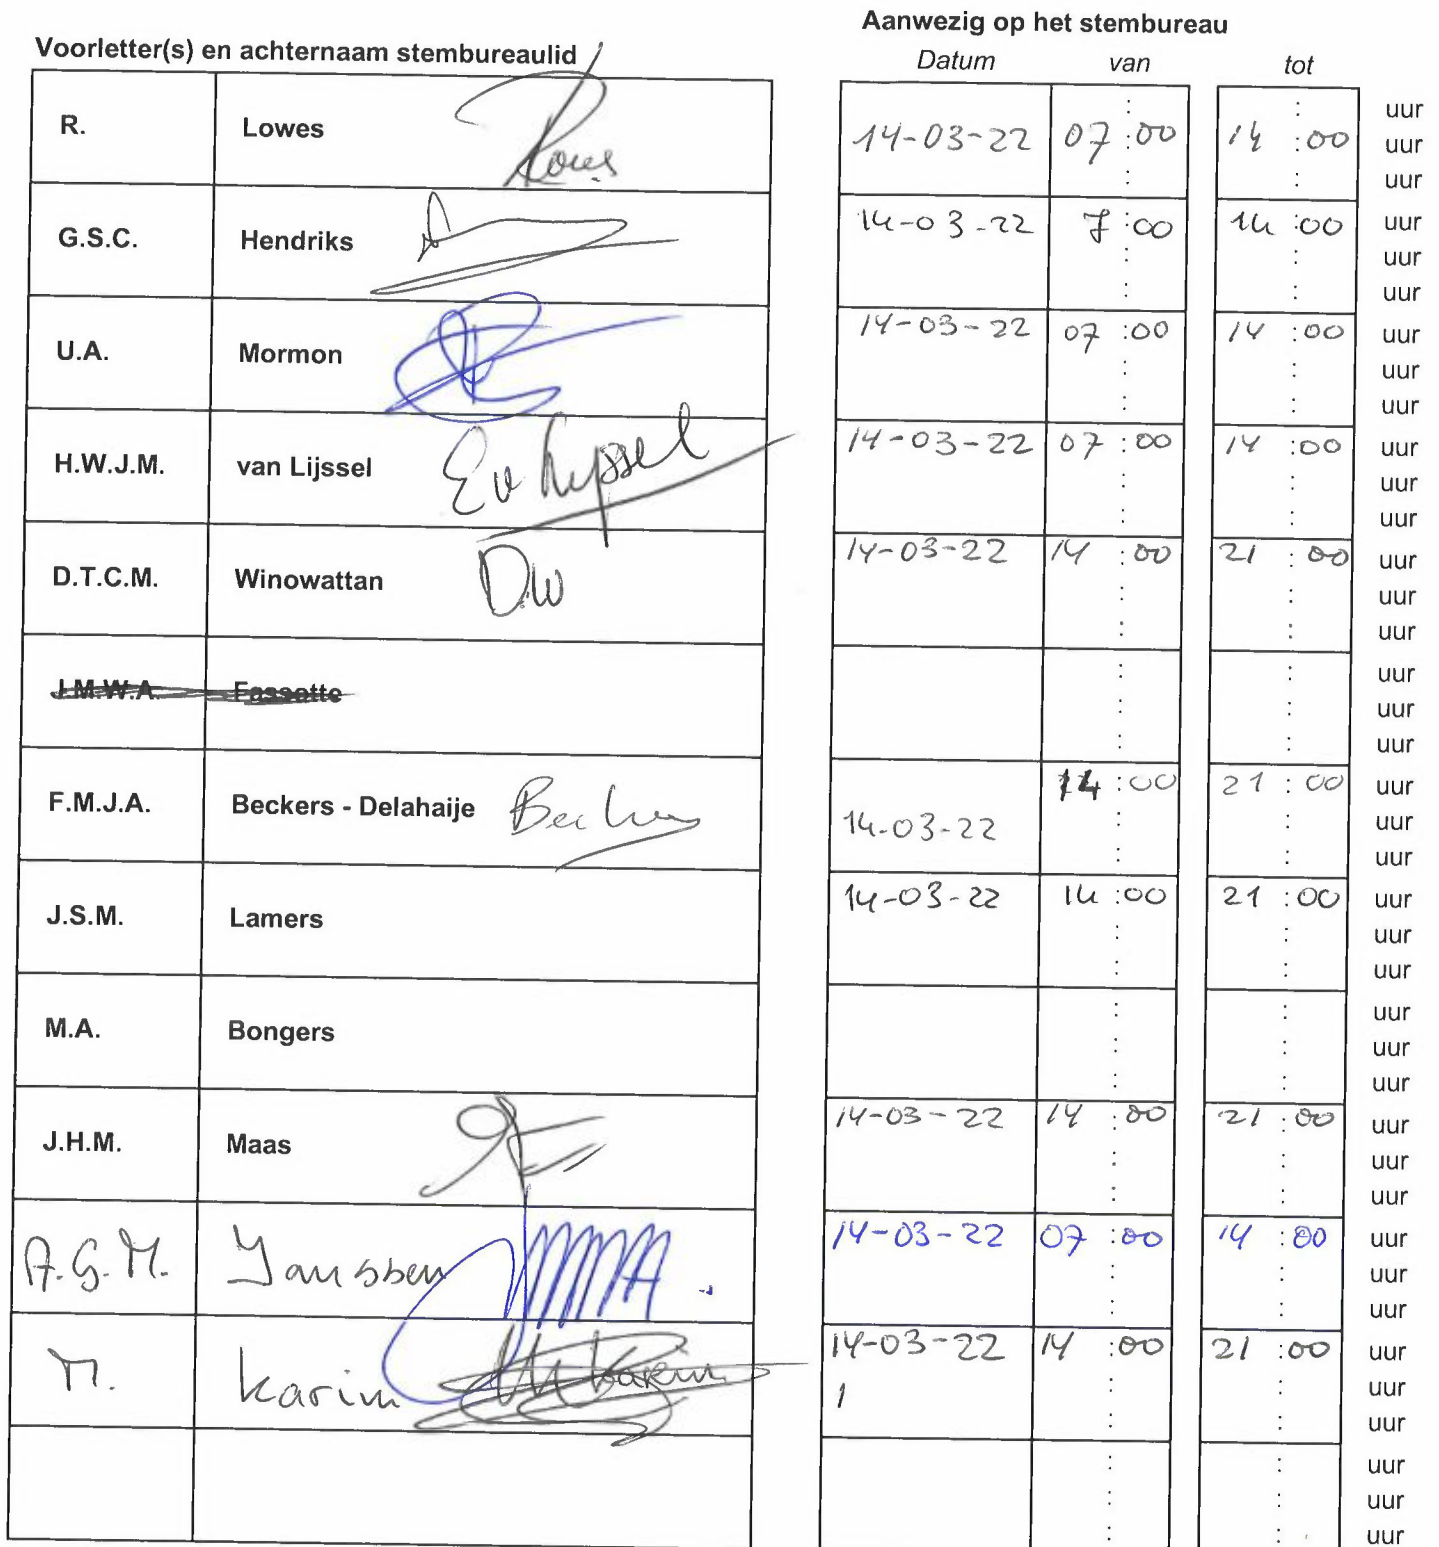 Aanwezig op het stembureau
Voorletter(s) en achternaam stembureaulid
Datum van tot
R. Lowes 14-03-22 07:00 14:00 uur
uur
uur
G.S.C. Hendriks 14-03-22 7:00 14:00 uur
uur
uur
U.A. Mormon 14-03-22 07:00 14:00 uur
uur
uur
H.W.J.M. van Lijssel Ev Lijssel 14-03-22 07:00 14:00 uur
uur
uur
D.T.C.M. Winowattan D.W 14-03-22 14:00 21:00 uur
uur
uur
J.M.W.A. Fassotte uur
uur
uur
F.M.J.A. Beckers - Delahaije 14-03-22 14:00 21:00 uur
uur
uur
J.S.M. Lamers 14-03-22 14:00 21:00 uur
uur
uur
M.A. Bongers uur
uur
uur
J.H.M. Maas 14-03-22 14:00 21:00 uur
uur
uur
A.G.M. Janssen 14-03-22 07:00 14:00 uur
uur
uur
M. Karim 14-03-22 14:00 21:00 uur
uur
uur
uur
uur
uur